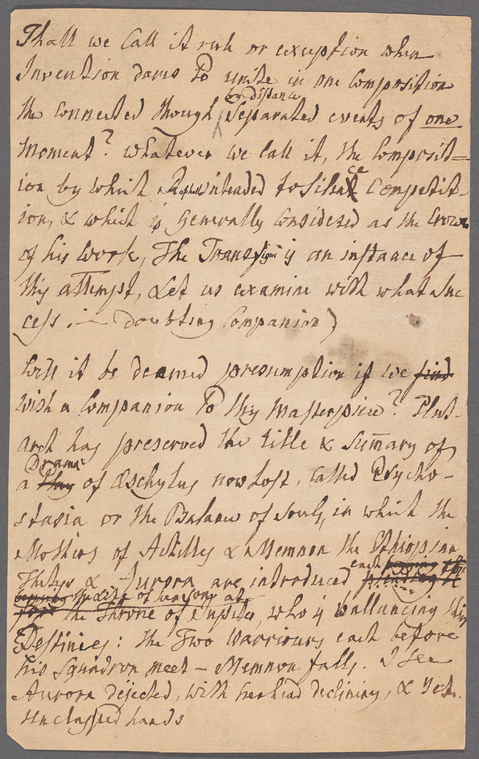 Shall we call it rule or exception when
Invention dares to unite in one Composition
by distance
the connected though Separated events of one
Moment? Whatever we call it, the Composit=
ion by which Raphael intended to silence Competit-
ion, & which is generally considered as the Crown
of his Work, The Transfiguration is an instance of
this attempt, Let us examine with what suc
cess. — doubting Companion)
Will it be deemed presumption if we find
wish a Companion to this Masterpiece? Plut-
arch has preserved the title & Sum̄ary of
Drama
a Play of Æschylus now lost, called Psycho-
stasia or the Balance of Souls, in which the
Mothers of Achilles & Memnon the Ethiopian
Thetys & Aurora are introduced each
at
the Throne of Jupiter, who is ballancing their
Destinies: the Two Warriours each before
his Squadron meet – Memnon falls. I see
Aurora dejected, with her head declining, & yet
unclasped hands